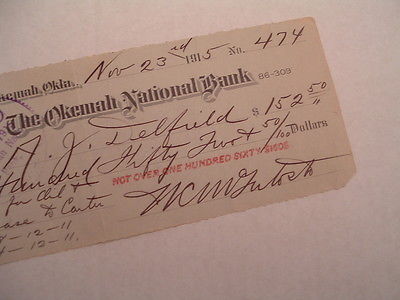 Okemah, Okla., Nov 23rd 1915 No. 474
The Okemah National Bank 86-309
J. Delfield $ 152 50
Hundred Fifty Two & 50/100 Dollars
NOT OVER ONE HUNDRED SIXTY $160$
for Oil &
Lease to Carter
-12-11
-12-11. McIntosh